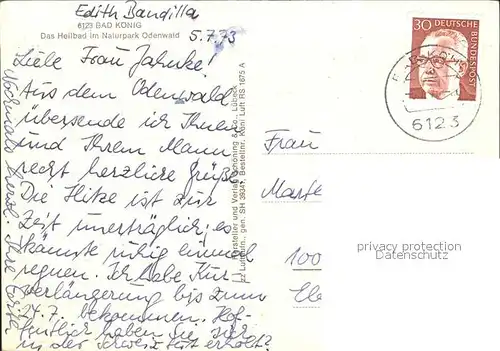 Edith Bandilla
6123 BAD KÖNIG
Das Heilbad im Naturpark Odenwald
5.7.73
Liebe Frau Jahnke!
Aus dem Odenwald
übersende ich Ihnen
und Ihrem Mann
recht herzliche Grüße
Die Hitze ist zur
Zeit unerträglich, es
könnte ruhig einmal
regnen. Ich habe Kur-
verlängerung bis zum
24.7. bekommen. Hof-
fentlich haben Sie sich
in der Schweiz gut erholt?
Nochmals herzl. Ihre
Hersteller und Verlag Schöning & Co., Lübeck
Luftaufn., gen. SH 39341, Bestellnr. König Luft RS 1675 A
30 DEUTSCHE
BUNDESPOST
6123
Frau
100
privacy protection
Datenschutz